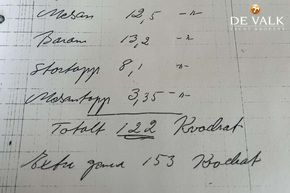 DE VALK
Mesan 12,5 -"-
Baram 13,2 -"-
Stortopp 8,1 -"-
Mesantopp 3,35 -"-
Totalt 122 Kvadrat
Extra genua 153 Kvadrat